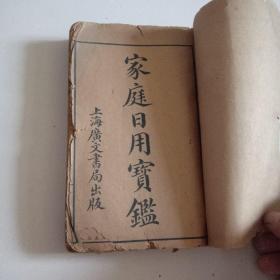 家庭日用寶鑑
上海廣文書局出版